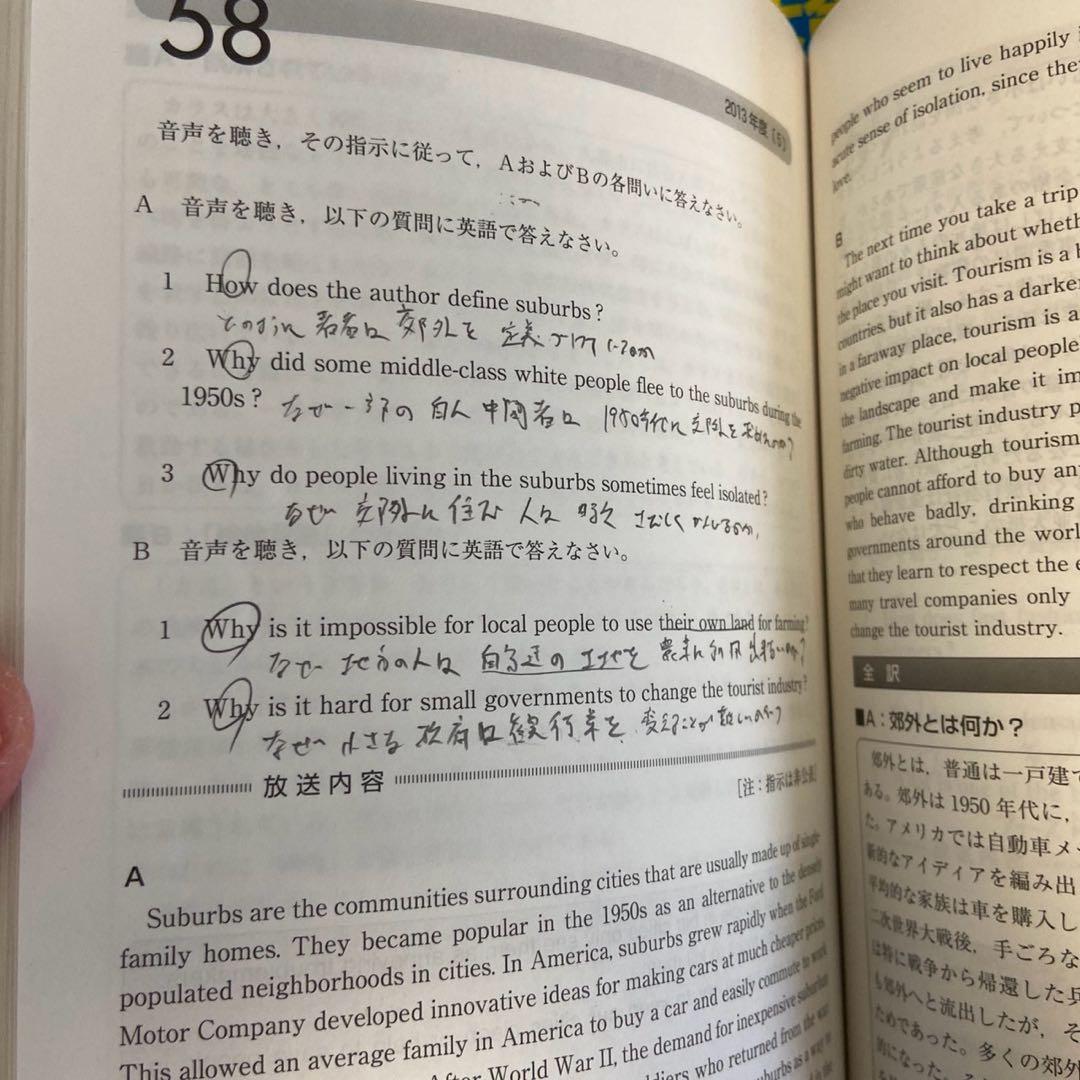 58
2013年度〔5〕
音声を聴き，その指示に従って，AおよびBの各問いに答えなさい。
A 音声を聴き，以下の質問に英語で答えなさい。
1 How does the author define suburbs?
郊外を 定義
2 Why did some middle-class white people flee to the suburbs during the
1950s?
なぜ 一部の 白人
3 Why do people living in the suburbs sometimes feel isolated?
なぜ 郊外に 住む 人は
B 音声を聴き，以下の質問に英語で答えなさい。
1 Why is it impossible for local people to use their own land for farming?
なぜ 地方の人は 自分達の 土地を
2 Why is it hard for small governments to change the tourist industry?
なぜ 小さな 政府は 観光業を 変えることが 難しいのか?
放送内容
［注：指示は非公表］
A
Suburbs are the communities surrounding cities that are usually made up of single-
family homes. They became popular in the 1950s as an alternative to the densely
populated neighborhoods in cities. In America, suburbs grew rapidly when the Ford
Motor Company developed innovative ideas for making cars at much cheaper prices.
This allowed an average family in America to buy a car and easily commute to work
After World War II, the demand for inexpensive suburban
who returned from the war
suburbs as a way to
people who seem to live happily
acute sense of isolation, since
love.
B
The next time you take a trip
might want to think about
the place you visit. Tourism is a
countries, but it also has a darker
in a faraway place, tourism is a
negative impact on local people
the landscape and make it
farming. The tourist industry
dirty water. Although tourism
people cannot afford to buy
who behave badly, drinking
governments around the
that they learn to respect the
many travel companies only
change the tourist industry.
全訳
■A：郊外とは何か？
郊外とは，普通は一戸建て
ある。郊外は1950年代に，
た。アメリカでは自動車メ
新的なアイディアを編み出
平均的な家族は車を購入し
二次世界大戦後，手ごろな
は特に戦争から帰還した兵
も郊外へと流出したが，そ
ためであった。多くの郊外
的になった。